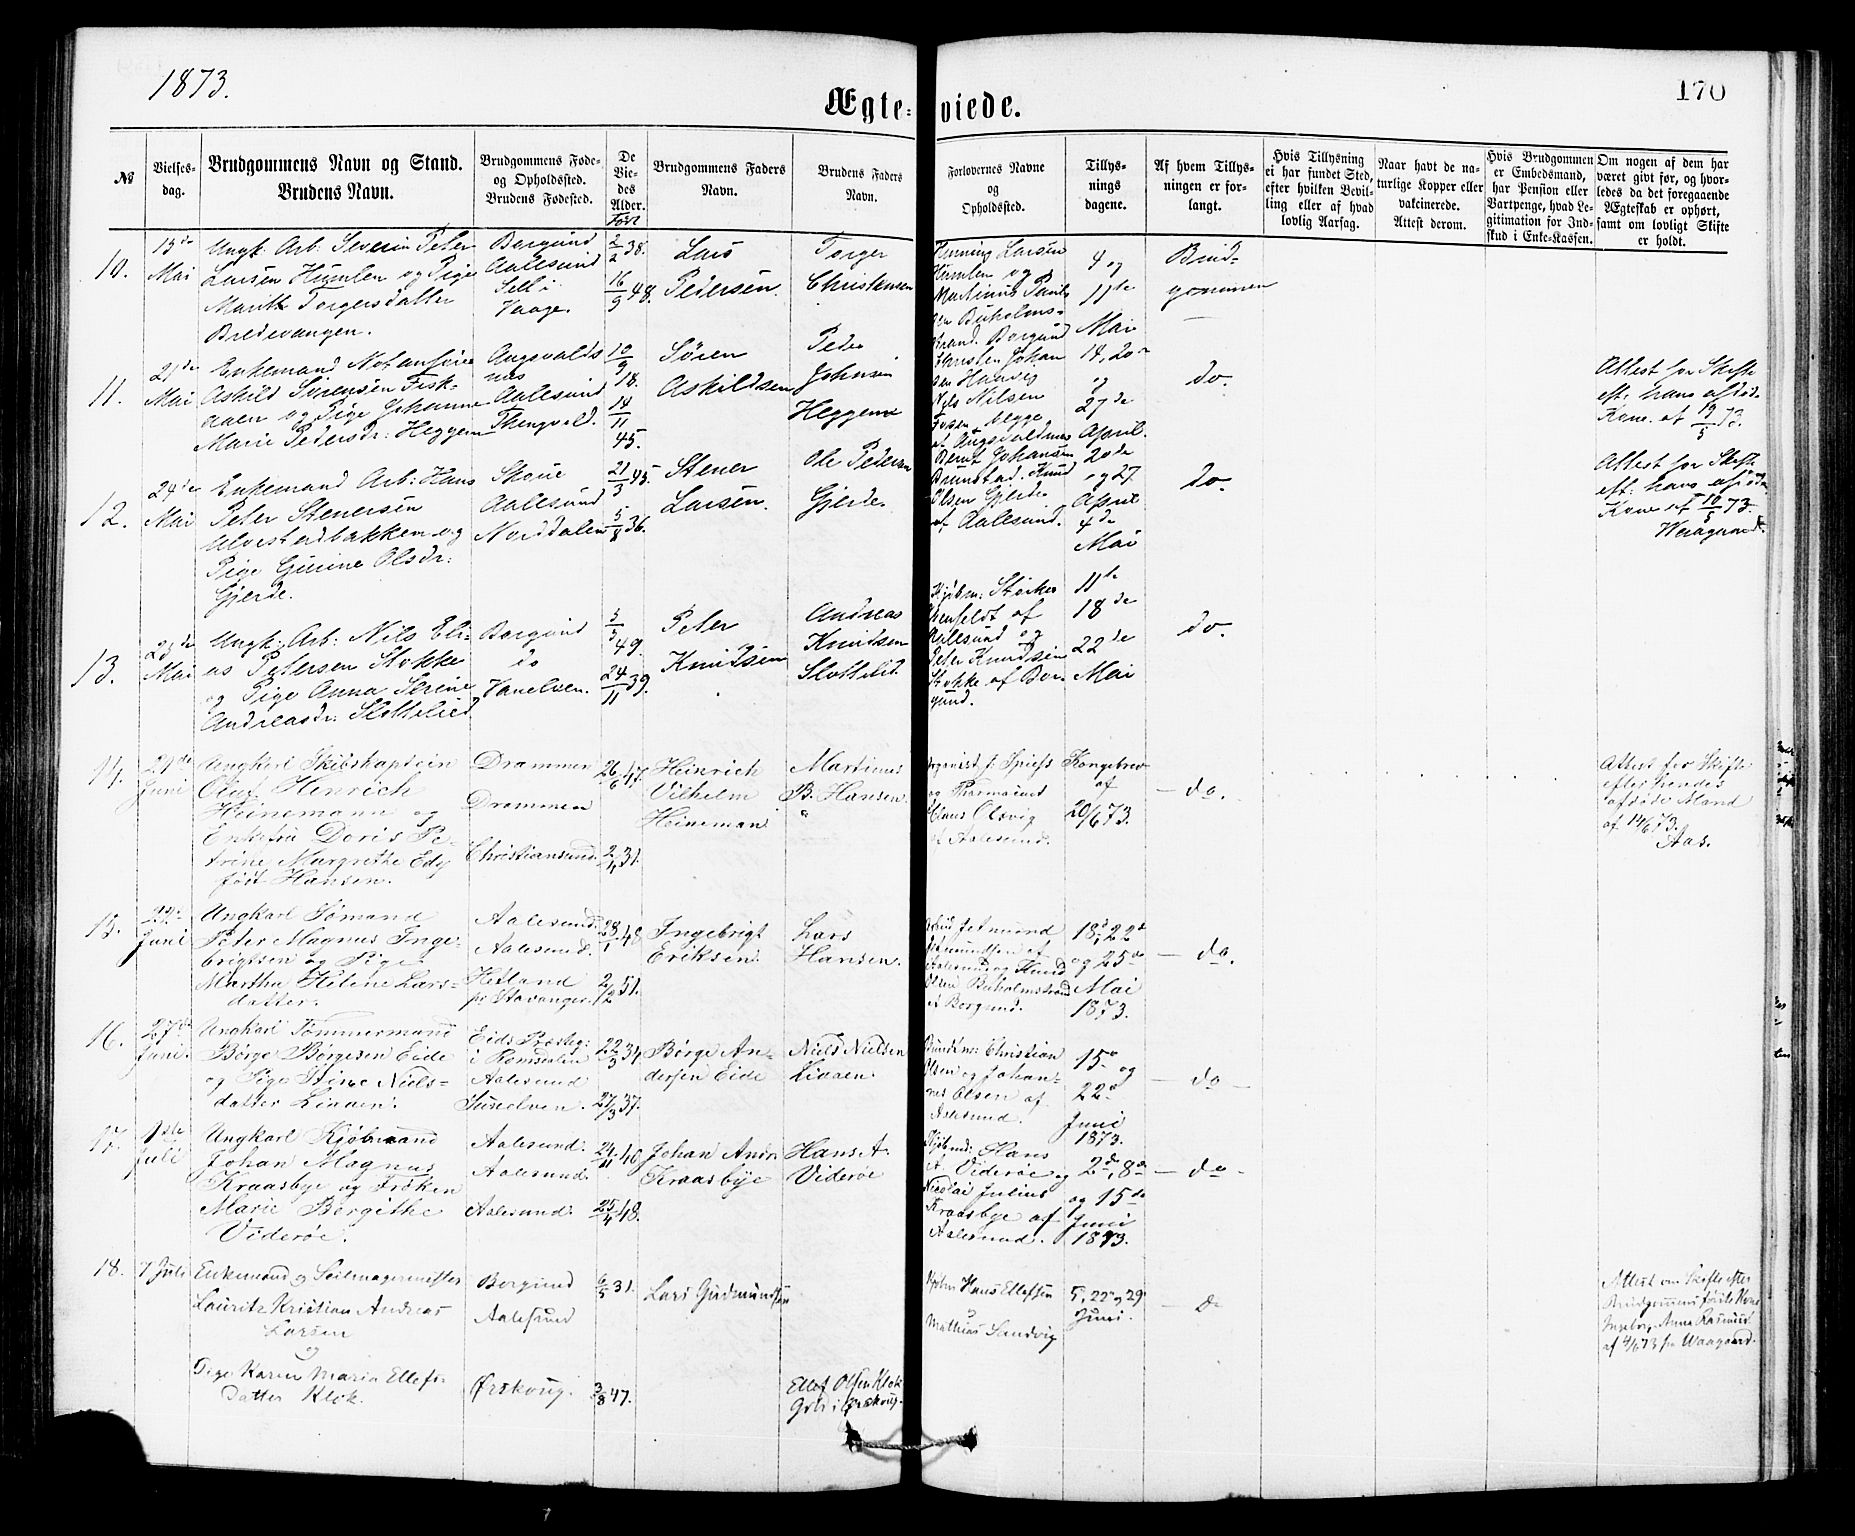 1873.
170
Ægte-viede.
№
Vielses-
dag.
Brudgommens Navn og Stand.
Brudens Navn.
Brudgommens Føde-
og Opholdssted.
Brudens Fødested.
De
Vie-
des
Alder.
Født
Brudgommens Faders
Navn.
Brudens Faders
Navn.
Forlovernes Navne
og
Opholdssted.
Tillys-
nings
dagene.
Af hvem Tillys-
ningen er for-
langt.
Hvis Tillysning
ei har fundet Sted,
efter hvilken Bevil-
ling eller af hvad
lovlig Aarsag.
Naar havt de na-
turlige Kopper eller
vakcinerede.
Attest derom.
Hvis Brudgommen
er Embedsmand,
har Pension eller
Vartpenge, hvad Le-
gitimation for Ind-
skud i Enke-Kassen.
Om nogen af dem har
været gift før, og hvor-
ledes da det foregaaende
Ægteskab er ophørt,
samt om lovligt Skifte
er holdt.
10.
Mai
Ungk. Arb. Severin Peter
Larsen Humlen og Pige
Marith Torgersdatter
Bredevangen.
Borgund
Aalesund
Sell i
Vaage.
2/2 38.
16/9 48.
Lars
Pedersen.
Torger
Christensen
Henning Larsen
Humlen og
Martinus Paul-
sen Buholms-
strand. Borgund
4 og
11te
Mai
Brud-
gommen
11.
21de
Mai
Enkemand
Askild Sørensen Fisk-
aaen og Pige Johanne
Marie Pedersdr: Heggem
Augvalds
næs
Aalesund
Thengvold.
10/9 18.
14/11 45.
Søren
Askildsen
Peder
Johnsen
Heggem
Johan
sen Hanseg
Nils Nilsen
Fossen begge
af Augvaldnæs
14, 20
og
27de
April.
do.
Attest for Skifte
eft. hans afdøde
Kone af 19/5 73.
12.
24de
Mai
Enkemand Arb: Hans
Peter Stenersen
Ulvestadbakken og
Pige Gurine Olsdr:
Gjerde.
Skoue
Aalesund
Norddalen
21/3 45.
5/8 36.
Stener
Larsen.
Ole Pedersen
Gjerde.
Bernt Johansen
Brunstad. Knud
Olsen Gjerde
af Aalesund.
20de
og 27
April
4de
Mai
do.
Attest for Skifte
eft: hans afdøde
Kone af 10/5 73.
Waagaard
13.
23de
Mai
Ungk. Arb: Nils Eli-
as Petersen Stokke
og Pige Anna Serine
Andreasdr: Slottelied.
Borgund
do
Vanelven.
5/3 49.
24/11 39.
Peter
Knudsen
Andreas
Knudsen
Slottelid.
Kjøbm: Størker
af
Aalesund og
Peter Knudsen
Stokke af Bor-
gund.
11te
18de
22de
Mai
do.
14.
21de
Juni
Ungkarl Skibskaptein
Oluf Henrich
Heinemann og
Enkefru Doris Pe-
trine Margrethe Edg
født Hansen.
Drammen
Drammen
Christiansund.
26/6 47.
2/4 31.
Heinrich
Vilhelm
Heineman
Martinus
B. Hansen.
"
Organist f. Spiess
og Pharmaceut
Claus Olsvig
af Aalesund.
Kongebrev
af
20/6 73.
— do.
Attest for Skifte
efter hendes
afdøde Mand
af 14/6 73.
Aas.
15.
Juni
Ungkarl Sømand
Peter Magnus Inge-
brigtsen og Pige
Martha Helene Lars-
datter.
Aalesund.
Aalesund.
Hetland
pr Stavanger.
28/1 48
2/12 51.
Ingebrigt
Eriksen.
Lars
Hansen.
Jetmund
af
Aalesund og Knud
Olsen Buholmstrand
i Borgund.
18d, 22d
og 25de
Mai
1873.
— do.
16.
27de
Juni.
Ungkarl Tømmermand
Børge Børgesen Eide
og Pige Stine Niels-
datter Liaaen.
Eids Præsteg:
i Romsdalen
Aalesund
Sunelven.
22/3 34.
27/3 37.
Børge An-
dersen Eide
Niels Nielsen
Liaaen.
Christian
Olsen og Johan-
nes Olsen af
Aalesund.
15de og
22d
Juni
1873.
— do —
17.
1ste
Juli
Ungkarl Kjøbmand
Johan Magnus
Kraasbye og Frøken
Marie Bergithe
Viderøe.
Aalesund.
Aalesund.
Aalesund.
24/11 40
25/4 48.
Johan Andr.
Kraasbye
Hans A.
Viderøe
Kjøbmd: Hans
A. Viderøe og
Nicolai Julius
Kraasbye af
Aalesund.
2de, 8de
og 15de
Juni
1873.
— do —
18.
7 Juli
Enkemand og Seilmagermester
Lauritz Kristian Andreas
Larsen
og
Pige Karen Maria Ellefs-
datter Klok.
Borgund
Aalesund
Ørskoug.
6/5 31.
3/8 47.
Lars Gudmundsen
Ellef Olsen Klok
Grd i Ørskoug.
Hans Ellefsen
og
Mathias Sandvig
5, 22 og 29
Juni.
— do
Attest om Skifte efter
Brudgommens første Kone
Ingeborg Anna Rasmusd
af 4/6 73 fra Waagaard.